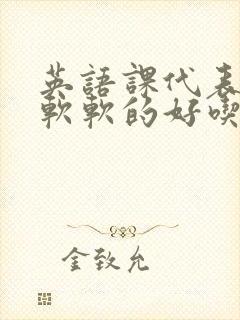 英語課代表
軟軟的好喫
金致允